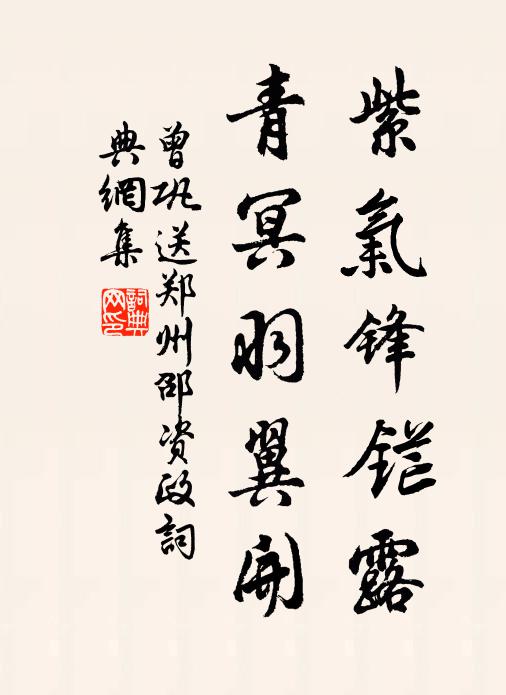 紫氣锋铓露
青冥羽翼開
曾巩送郑州邵资政詞
典網集
詞典網印